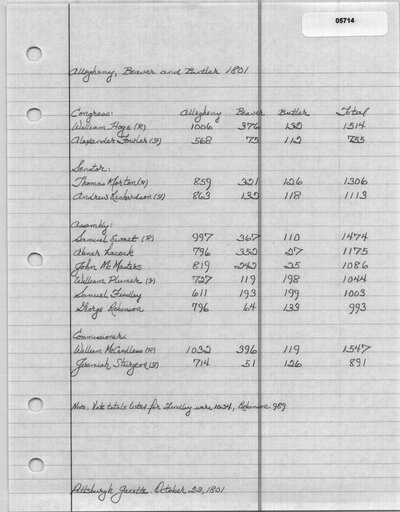 05714
Allegheny, Beaver and Butler 1801
Congress: Allegheny Beaver Butler Total
William Hoge (R) 1006 376 132 1514
Alexander Fowler (F) 568 75 112 755
Senator:
Thomas Morton (R) 859 321 126 1306
Andrew Richardson (F) 863 132 118 1113
Assembly:
Samuel Ewalt (R) 997 367 110 1474
Abner Lacock 796 352 27 1175
John McMasters 819 242 25 1086
William Plumer 727 119 198 1044
Samuel Findley 611 193 199 1003
George Robinson 796 64 133 993
Commissioner:
William McCandless (R) 1032 396 119 1547
Jeremiah Sturgeon (F) 714 51 126 891
Note: Vote totals listed for Findley were 1024, Robinson 989
Pittsburgh Gazette. October 23, 1801